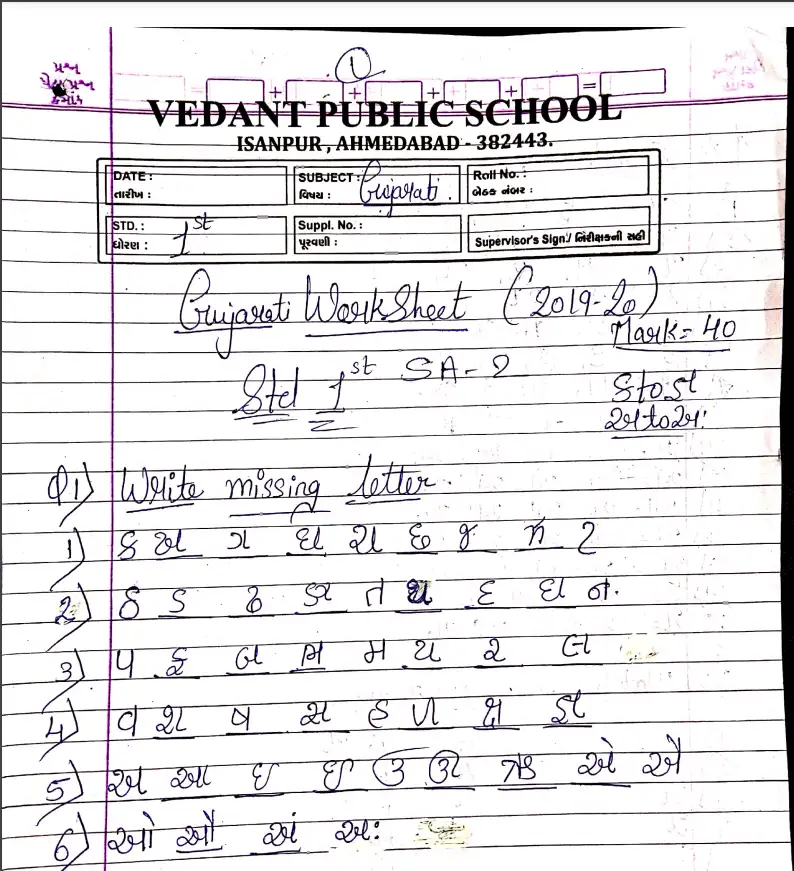 પ્રશ્ન
①
+ + + + =
VEDANT PUBLIC SCHOOL
ISANPUR, AHMEDABAD - 382443.
DATE : SUBJECT : Gujarati Roll No. :
તારીખ : વિષય : બેઠક નંબર :
STD. : 1st Suppl. No. :
ધોરણ : પૂરવણી : Supervisor's Sign./ નિરીક્ષકની સહી
Gujarati WorkSheet (2019-20)
Mark = 40
Std 1st SA-2
ક to જ્ઞ
અ to અઃ
Q1) Write missing letter.
1) ક ખ ગ ઘ ચ છ જ ઝ ટ
2) ઠ ડ ઢ ણ ત થ દ ધ ન.
3) પ ફ બ ભ મ ય ર લ
4) વ શ ષ સ હ ળ ક્ષ જ્ઞ
5) અ આ ઇ ઈ ઉ ઊ ઋ એ ઐ
6) ઓ ઔ અં અઃ